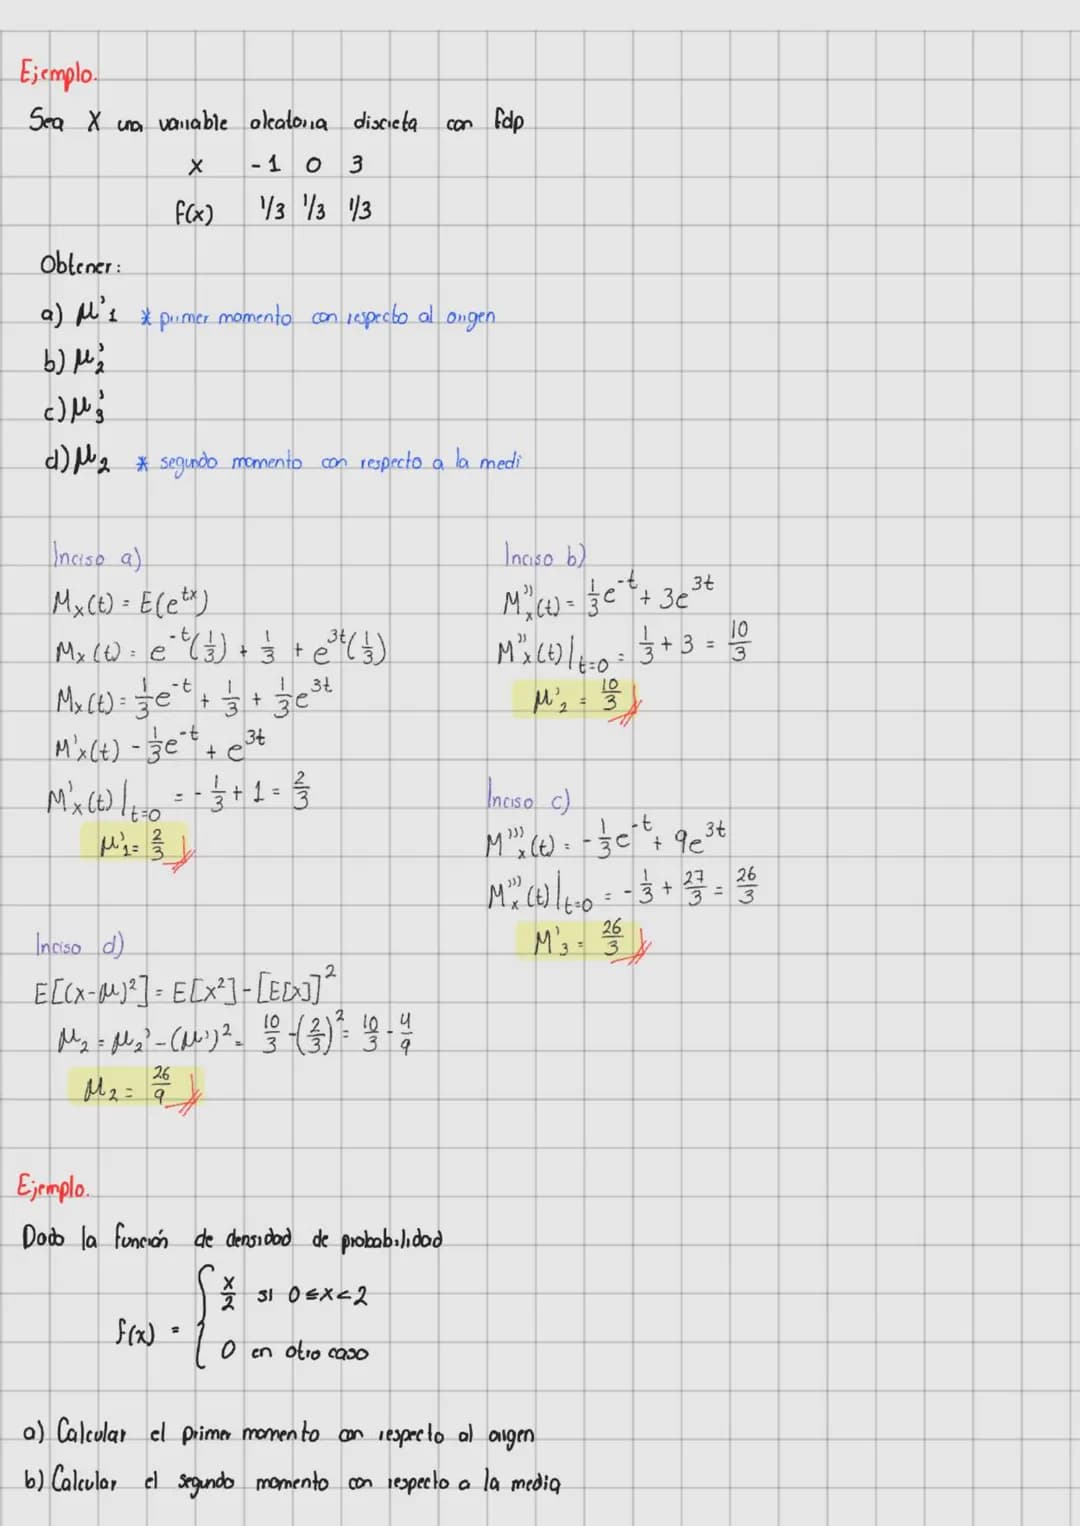 Ejemplo.
Sea X una variable aleatoria discreta con fdp
x -1 0 3
f(x) 1/3 1/3 1/3
Obtener:
a) μ'1 * primer momento con respecto al origen
b) μ'2
c) μ'3
d) μ2 * segundo momento con respecto a la medi
Inciso a)
Mx(t) = E(e^tx)
Mx(t) = e^-t(1/3) + 1/3 + e^3t(1/3)
Mx(t) = 1/3 e^-t + 1/3 + 1/3 e^3t
M'x(t) - 1/3 e^-t + e^3t
M'x(t)|t=0 = -1/3 + 1 = 2/3
μ'1 = 2/3
Inciso b)
M''x(t) = 1/3 e^-t + 3e^3t
M''x(t)|t=0 = 1/3 + 3 = 10/3
μ'2 = 10/3
Inciso c)
M'''x(t) = -1/3 e^-t + 9e^3t
M'''x(t)|t=0 = -1/3 + 27/3 = 26/3
M'3 = 26/3
Inciso d)
E[(x-μ)²] = E[x²] - [E[x]]²
μ2 = μ2' - (μ')² = 10/3 - (2/3)² = 10/3 - 4/9
μ2 = 26/9
Ejemplo.
Dado la función de densidad de probabilidad
f(x) = { x/2 si 0≤x<2
0 en otro caso
a) Calcular el primer momento con respecto al origen
b) Calcular el segundo momento con respecto a la media